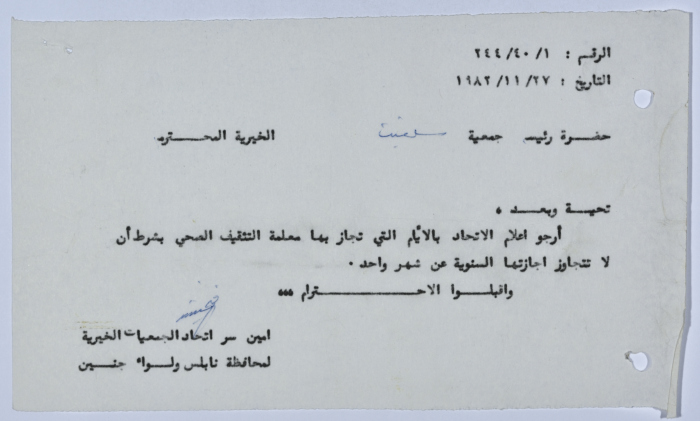 الرقم : ٢٤٤/٤٠/١
التاريخ : ١٩٨٢/١١/٢٧
حضرة رئيس جمعية سلفيت الخيرية المحترمه
تحية وبعد ،
أرجو اعلام الاتحاد بالأيام التي تجاز بها معلمة التثقيف الصحي بشرط أن
لا تتجاوز اجازتها السنوية عن شهر واحد ٠
واقبلوا الاحترام ،،،
امين سر اتحاد الجمعيات الخيرية
لمحافظة نابلس ولواء جنين